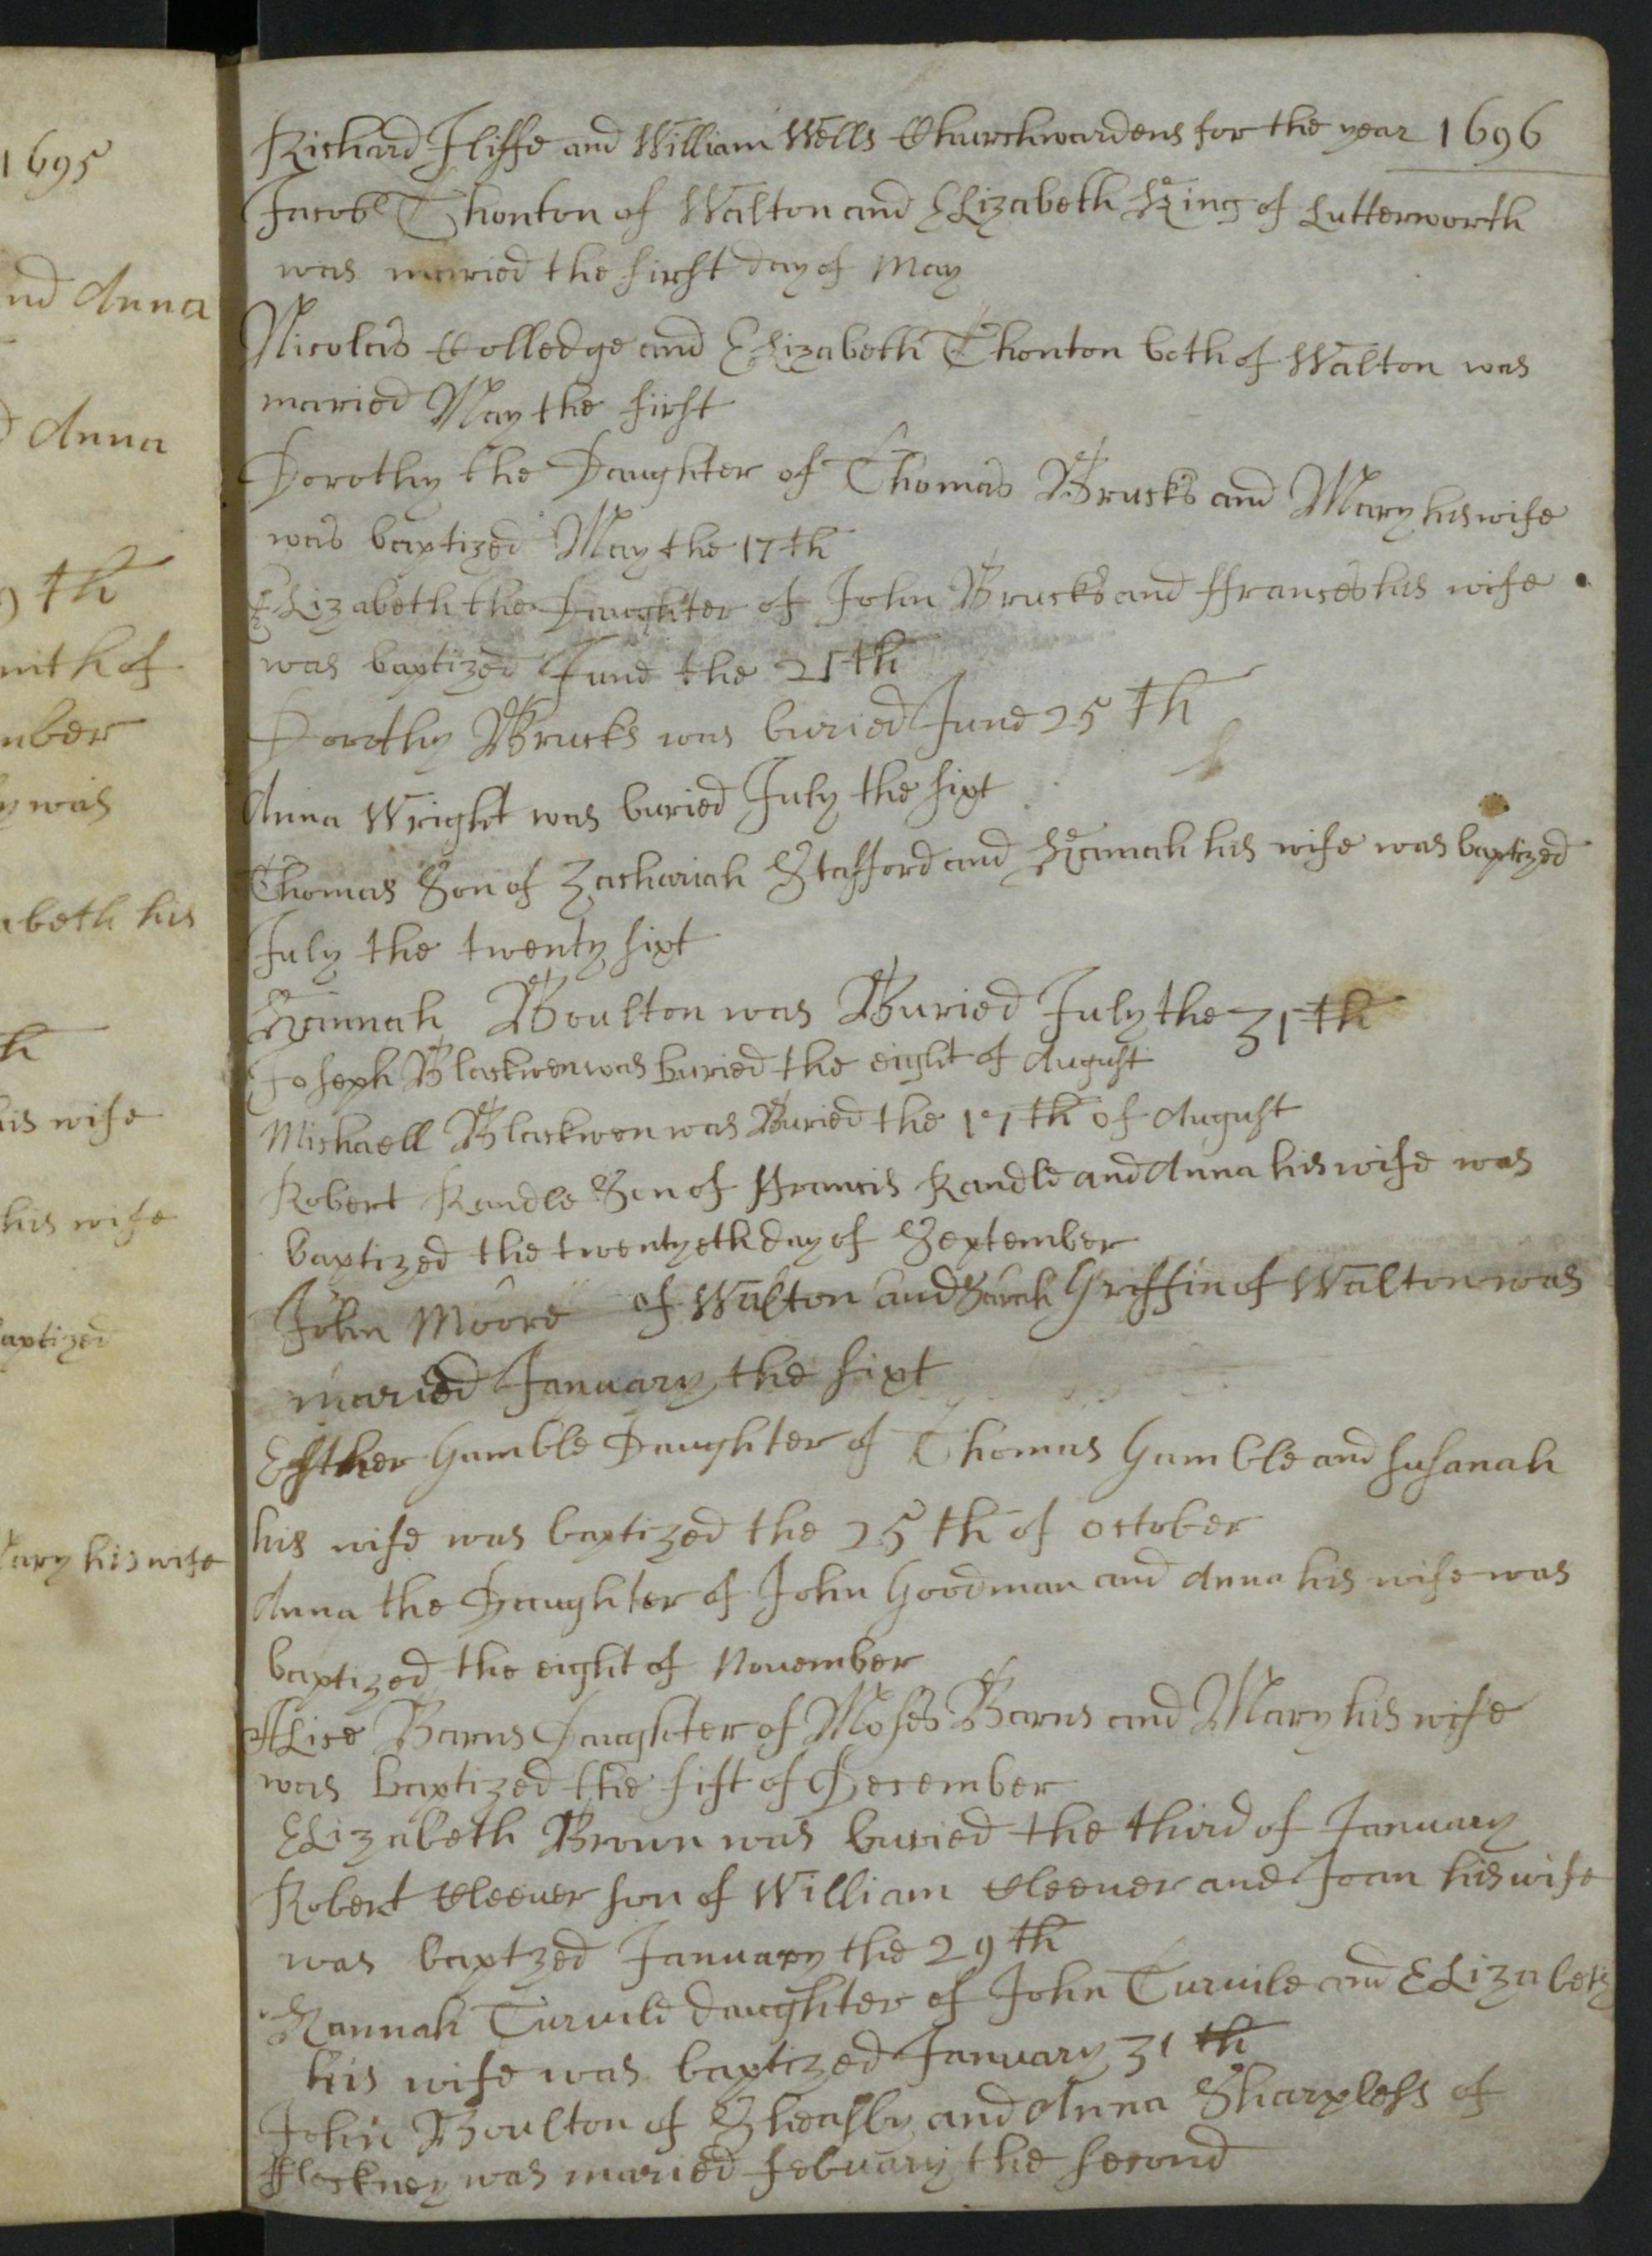 1695
nd Anna
d Anna
9 th
mith of
mber
y was
abeth his
th
his wife
his wife
aptized
Mary his wife
Richard Iliffe and William Wells Churchwardens for the year 1696
Jacob Thonton of Walton and Elizabeth King of Lutterworth
was maried the first day of May
Nicolas Colledge and Elizabeth Thonton both of Walton was
maried May the first
Dorothy the Daughter of Thomas Brucks and Mary his wife
was baptized May the 17th
Elizabeth the Daughter of John Brucks and ffrances his wife
was baptized June the 21th
Dorothy Brucks was buried June 25 th
Anna Wright was buried July the sixt
Thomas Son of Zachariah Stafford and Hannah his wife was baptized
July the twenty sixt
Hannah Boulton was Buried July the 31th
Joseph Blackwen was buried the eight of August
Michaell Blackwen was Buried the 17th of August
Robert Randle Son of ffrancis Randle and Anna his wife was
baptized the twentyeth day of September
John Moore of Walton and Sarah Griffin of Walton was
maried January the sixt
Esther Gamble Daughter of Thomas Gamble and Susanah
his wife was baptized the 25th of october
Anna the Daughter of John Goodman and Anna his wife was
baptized the eight of November
Alice Barns Daughter of Moses Barns and Mary his wife
was baptized the fift of December
Elizabeth Brown was buried the third of January
Robert Cleever son of William Cleever and Joan his wife
was baptzed January the 29th
Hannah Turvile daughter of John Turvile and Elizabeth
his wife was baptized January 31 th
John Boulton of Sheasby and Anna Sharpless of
ffleckney was maried febuary the second